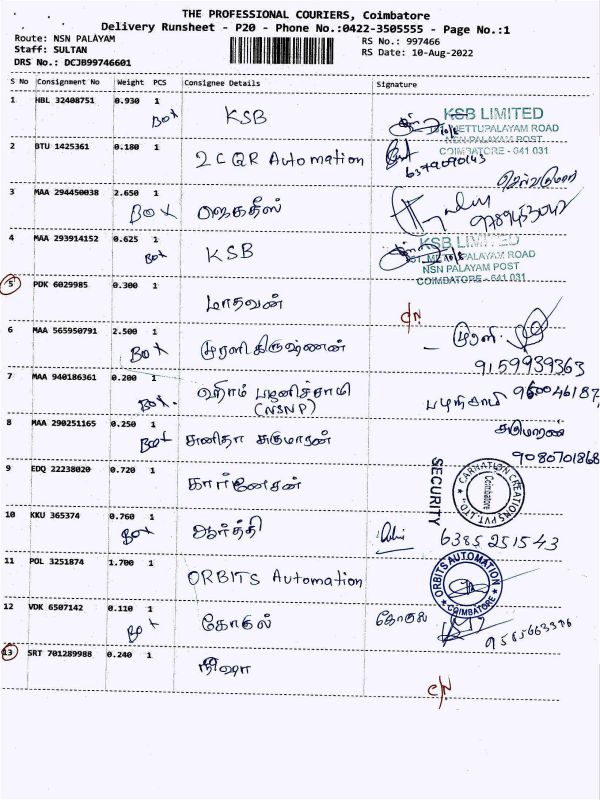 THE PROFESSIONAL COURIERS, Coimbatore
Delivery Runsheet - P20 - Phone No.:0422-3505555 - Page No.:1
Route: NSN PALAYAM
Staff: SULTAN
DRS No.: DCJB99746601
RS No.: 997466
RS Date: 10-Aug-2022
S No Consignment No Weight PCS Consignee Details Signature
1 HBL 32408751 0.930 1 Box KSB
KSB LIMITED
METTUPALAYAM ROAD
NSN PALAYAM POST
COIMBATORE - 641 031
2 BTU 1425361 0.180 1 2CQR Automation 6379090143
செல்வகுமார்
3 MAA 294450038 2.650 1 Box
4 MAA 293914152 0.625 1 Box KSB
KSB LIMITED
PALAYAM ROAD
NSN PALAYAM POST
COIMBATORE - 641 031
5 PDK 6029985 0.300 1 மாதவன் C/N
6 MAA 565950791 2.500 1 Box முரளிகிருஷ்ணன் முரளி
9159939363
7 MAA 940186361 0.200 1 Box பழனிச்சாமி
(NSNP) பழனிசாமி
8 MAA 290251165 0.250 1 Box சுனிதா சுகுமாரன் சுகுமாரன்
9080701868
9 EDQ 22238020 0.720 1 கார்னேசன்
SECURITY
CARNATION CREATIONS PVT. LTD.
Coimbatore
10 KKU 365374 0.760 1 Box ஆர்த்தி 6385251543
11 POL 3251874 1.700 1 ORBITS Automation
ORBITS AUTOMATION
COIMBATORE
12 VDK 6507142 0.110 1 Box கோகுல் கோகுல்
13 SRT 701289988 0.240 1 C/N